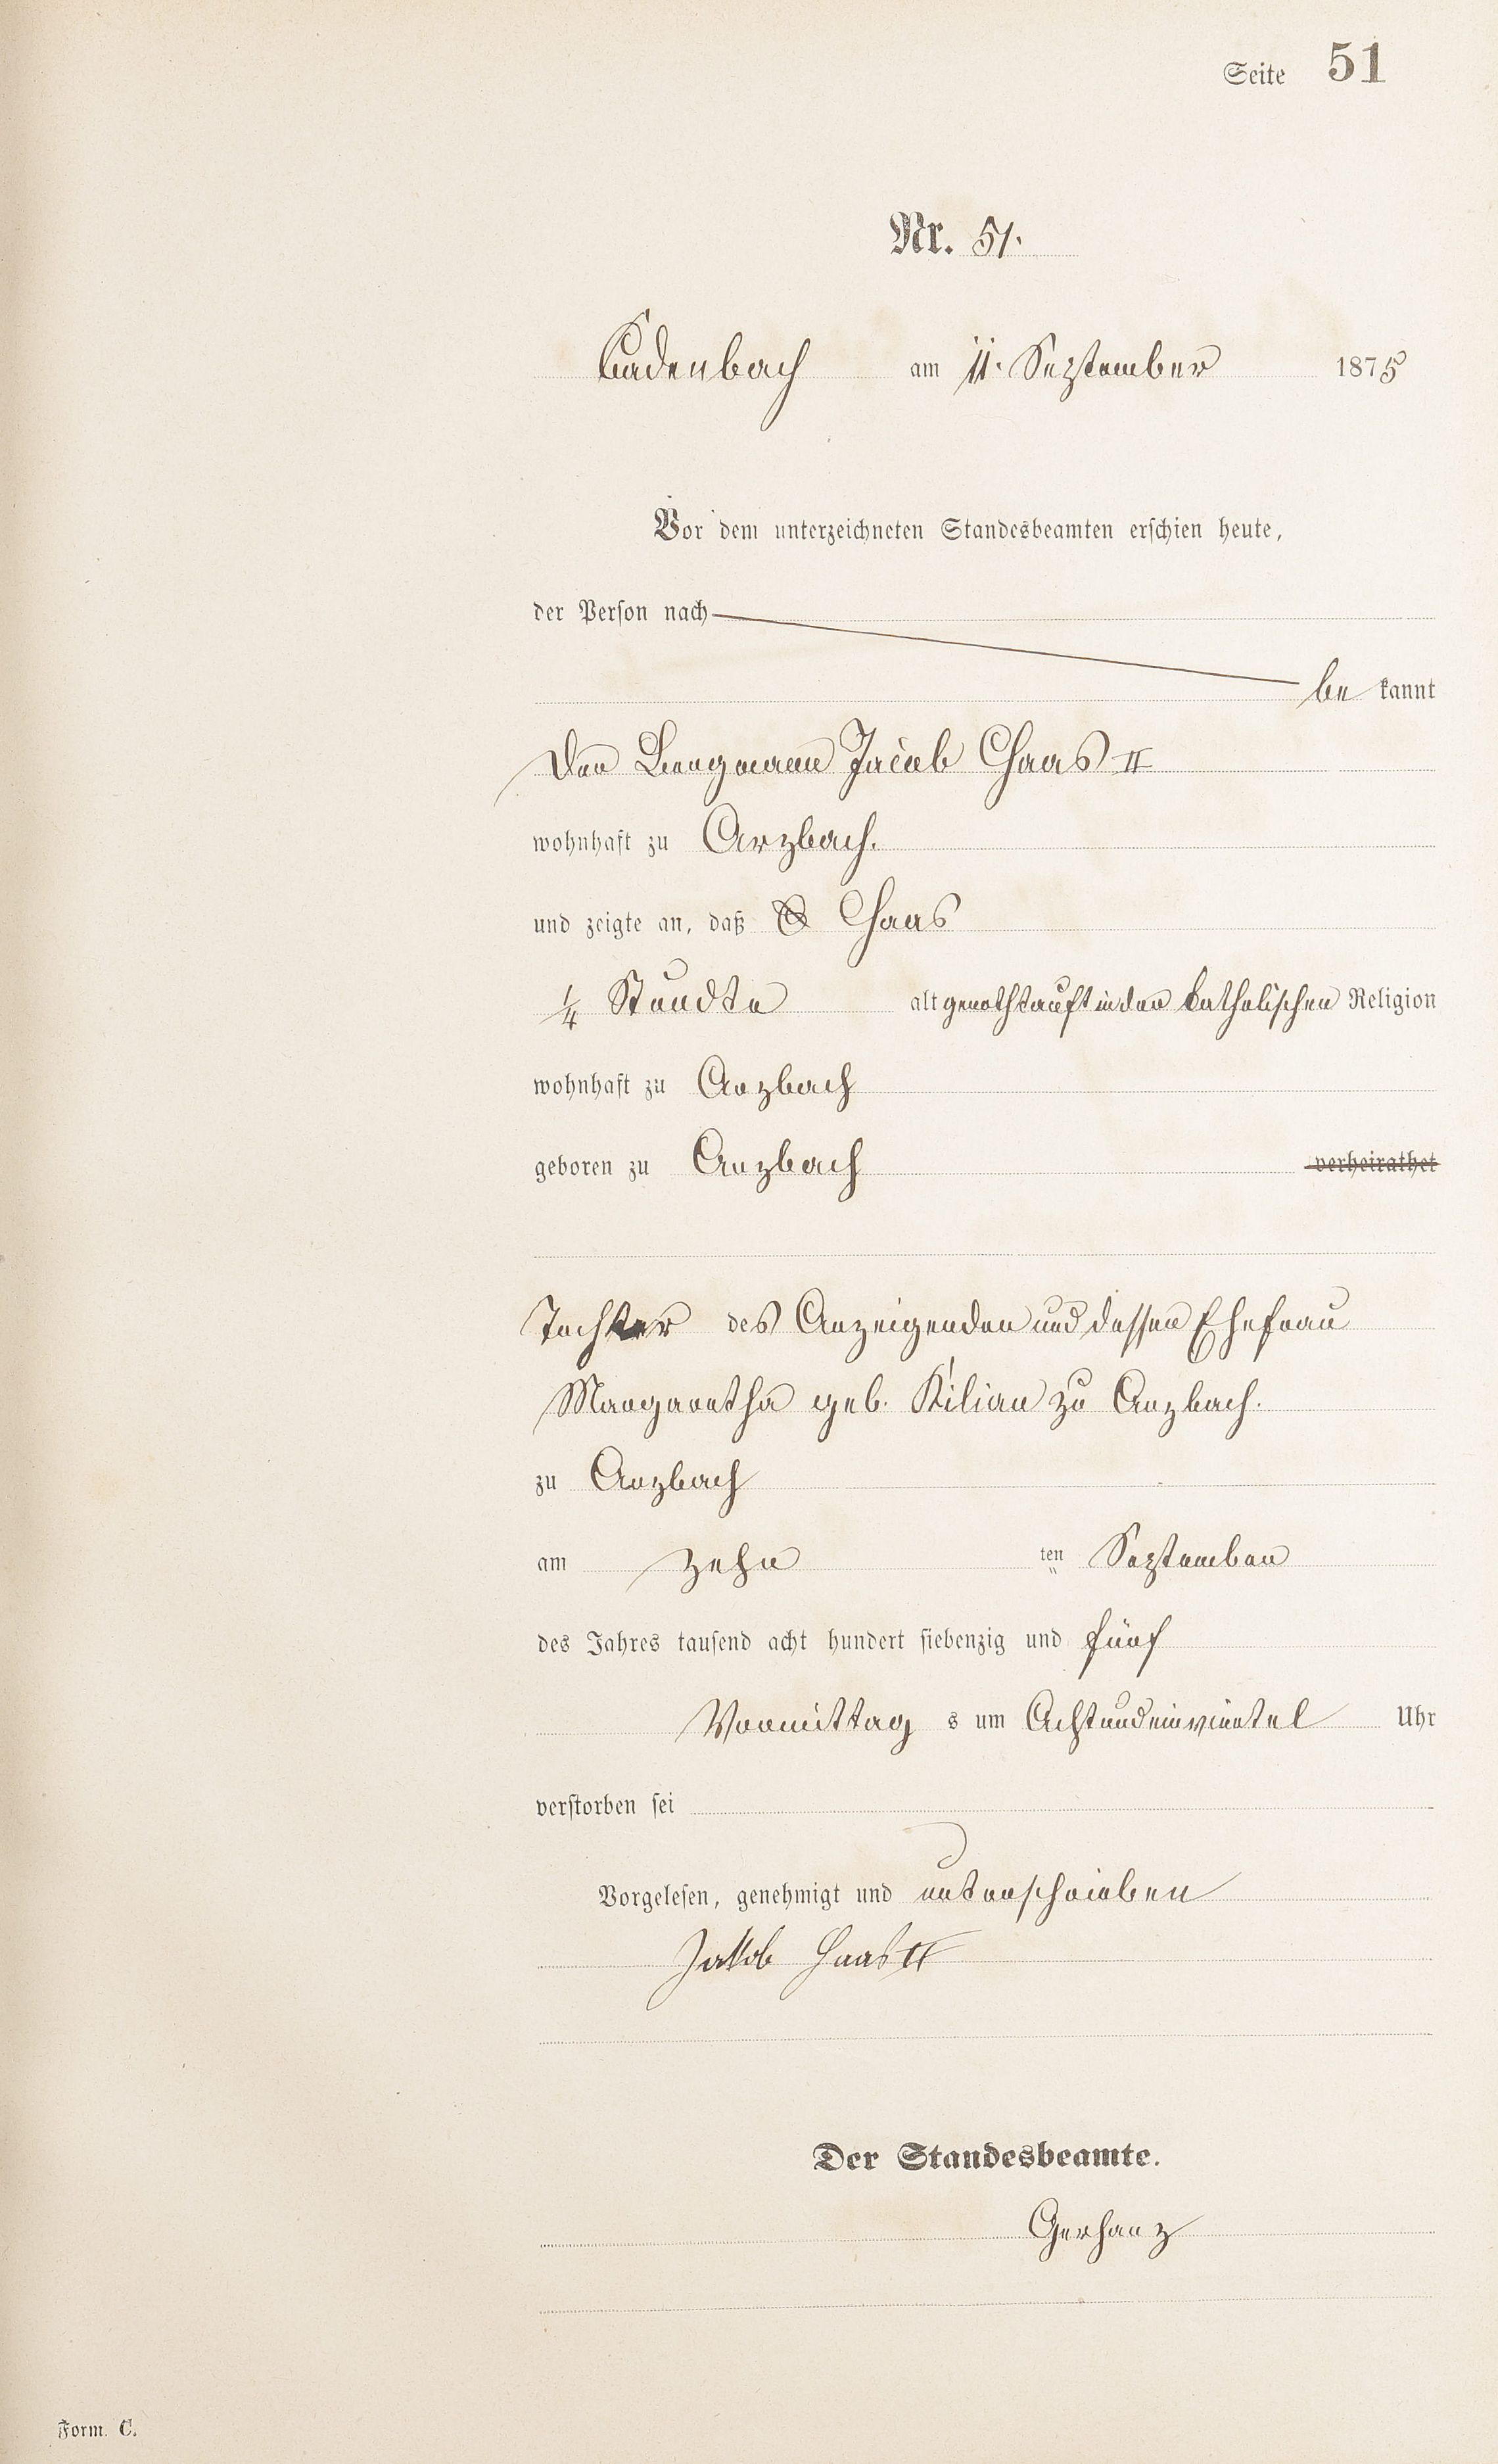 Seite 51
Nr. 51.
Kadenbach am 11. September 1875
Vor dem unterzeichneten Standesbeamten erschien heute,
der Person nach
be kannt
Der Bergmann Jacob Haas II
wohnhaft zu Arzbach.
und zeigte an, daß Haas
1/4 Stundte alt genothtauft in der katholischen Religion
wohnhaft zu Arzbach
geboren zu Arzbach verheirathet
Tochter des Anzeigenden und dessen Ehefrau
Margaretha geb. Kilian zu Arzbach.
zu Arzbach
am zehn ten September
des Jahres tausend acht hundert siebenzig und fünf
Vormittag s um Acht und ein viertel Uhr
verstorben sei
Vorgelesen, genehmigt und unterschrieben
Jakob Haas II
Der Standesbeamte.
Gerhanz
Form. C.